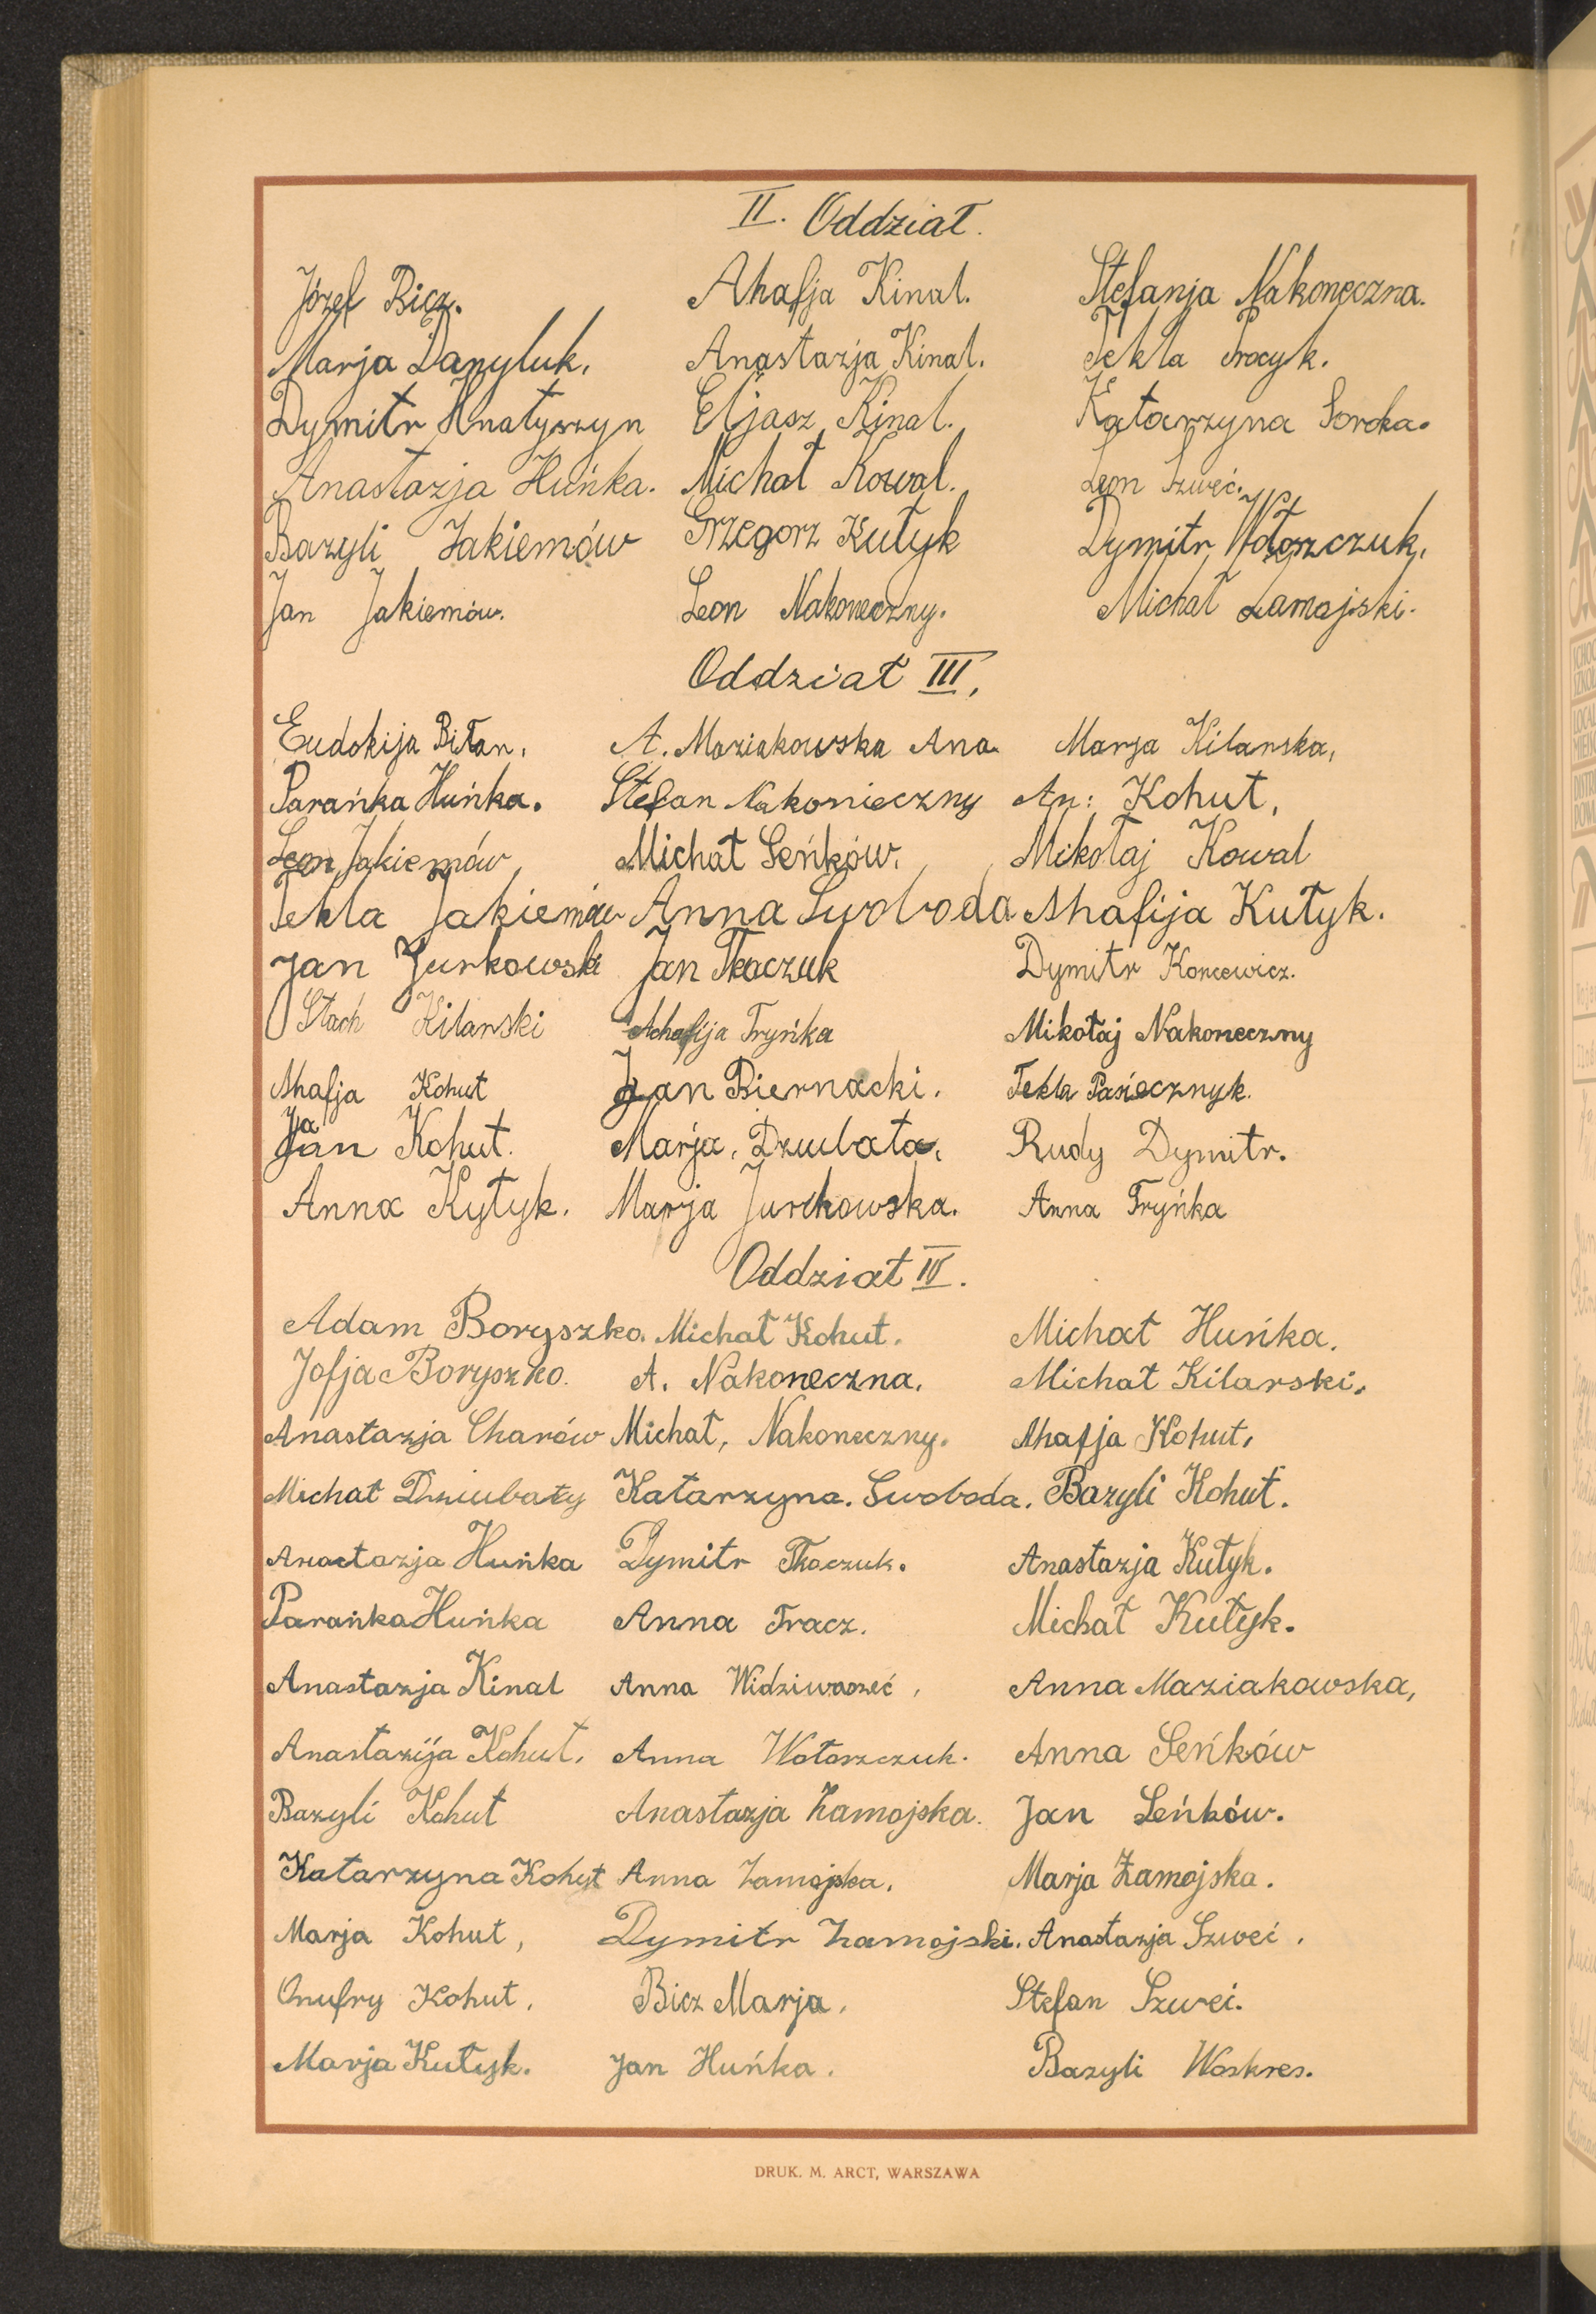 II. Oddział.
Józef Bicz. Ahafja Kinal. Stefanja Nakoneczna.
Marja Danyluk. Anastazja Kinal. Tekla Procyk.
Dymitr Hnatyszyn Eljasz Kinal. Katarzyna Soroka.
Anastazja Huńka. Michał Kowal. Leon Szweć.
Bazyli Jakiemów Grzegorz Kutyk Dymitr Wołoszczuk.
Jan Jakiemów. Leon Nakoneczny. Michał Zamojski.
Oddział III.
Eudokija Biłan. A. Maziakowska Ana Marja Kilarska,
Parańka Huńka. Stefan Nakonieczny An: Kohut,
Leon Jakiemów Michał Seńków. Mikołaj Kowal
Tekla Jakiemów Anna Swoboda Ahafija Kutyk.
Jan Jurkowski Jan Tkaczuk Dymitr Koncewicz.
Stach Kilarski Achafija Tryńka Mikołaj Nakoneczny
Ahafja Kohut Jan Biernacki. Tekla Pasiecznyk.
Jan Kohut. Marja, Dziubata. Rudy Dymitr.
Anna Kytyk. Marja Jurkowska. Anna Tryńka
Oddział IV.
Adam Boryszko. Michał Kohut. Michał Huńka.
Zofja Boryszko. A. Nakoneczna. Michał Kilarski.
Anastazja Charów Michał, Nakoneczny. Ahafja Kohut,
Michał Dziubaty Katarzyna. Swoboda. Bazyli Kohut.
Anastazja Huńka Dymitr Tkaczuk. Anastazja Kutyk.
Parańka Huńka Anna Tracz. Michał Kutyk.
Anastazja Kinal Anna Anna Maziakowska,
Anastazija Kohut. Anna Wołoszczuk. Anna Seńków
Bazyli Kohut Anastazja Zamojska. Jan Seńków.
Katarzyna Kohut Anna Zamojska. Marja Zamojska.
Marja Kohut, Dymitr Zamojski. Anastazja Szweć.
Onufry Kohut. Bicz Marja. Stefan Szweć.
Marja Kutyk. Jan Huńka. Bazyli Woskres.
DRUK. M. ARCT, WARSZAWA